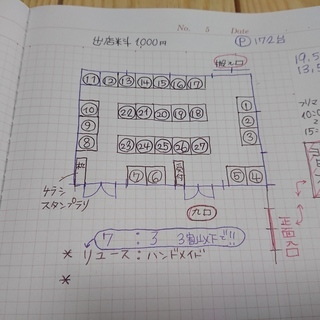 No. 5 Date
出店料 1,000円
Ⓟ 172台
搬入口
19,5
13,5
⑪ ⑫ ⑬ ⑭ ⑮ ⑯ ⑰
⑩ ㉒ ㉑ ⑳ ⑲ ⑱ ①
⑨ ②
⑧ ㉓ ㉔ ㉕ ㉖ ㉗ ③
⑦ ⑥ ⑤ ④
チラシ
スタンプラリ
入口
正面入口
フリマ
10:0
7 : 3 3割以下で!!
* リユース:ハンドメイド
*